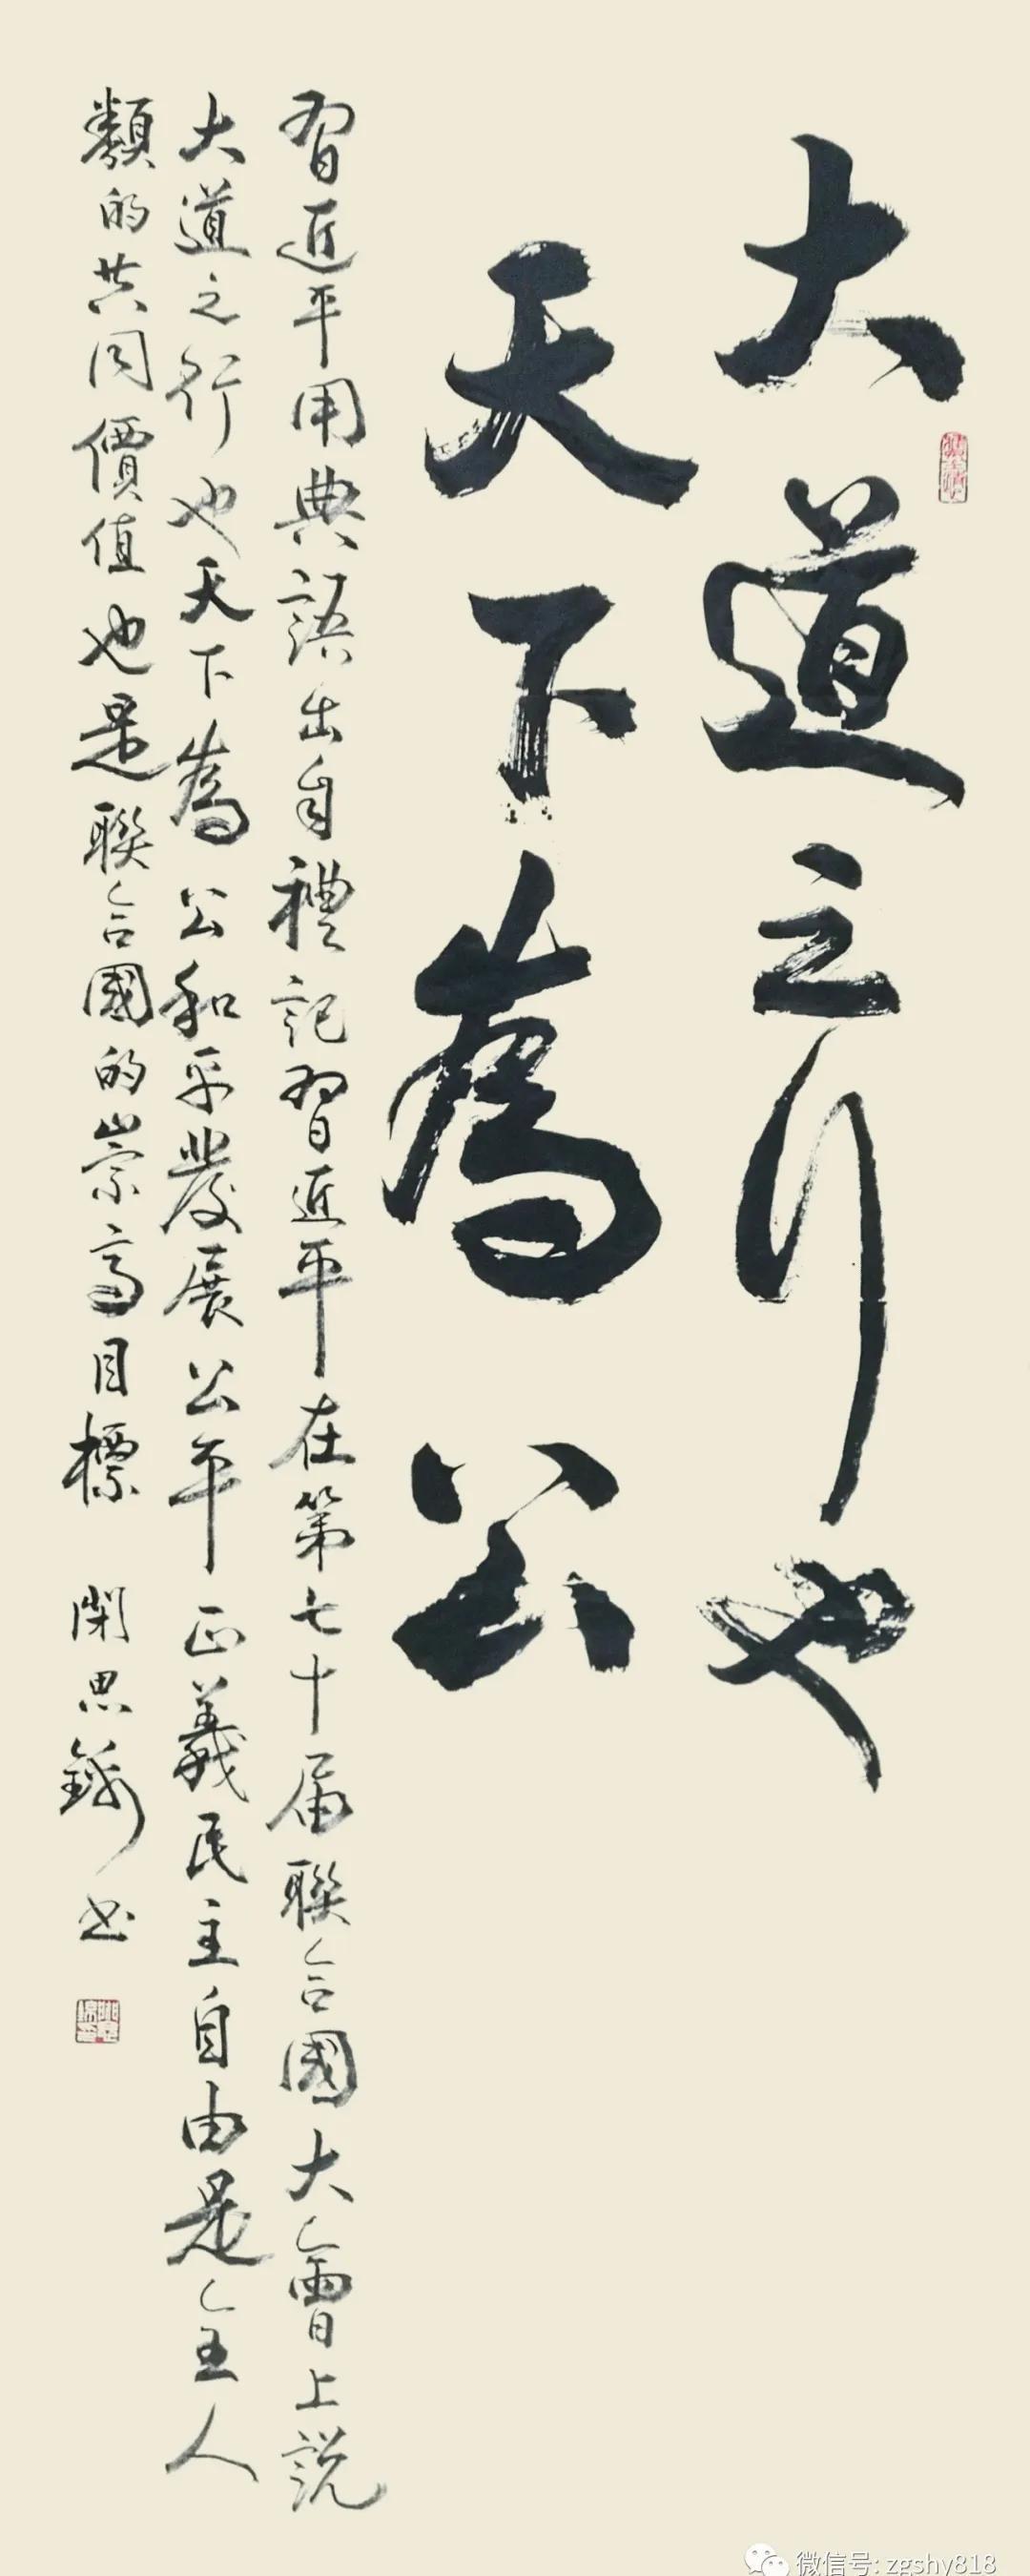 大道之行也
天下為公
習近平用典語出自禮記習近平在第七十届聯合國大會上説
大道之行也天下為公和平發展公平正義民主自由是全人
類的共同價值也是聯合國的崇高目標 思 书
微信号: zgshy818